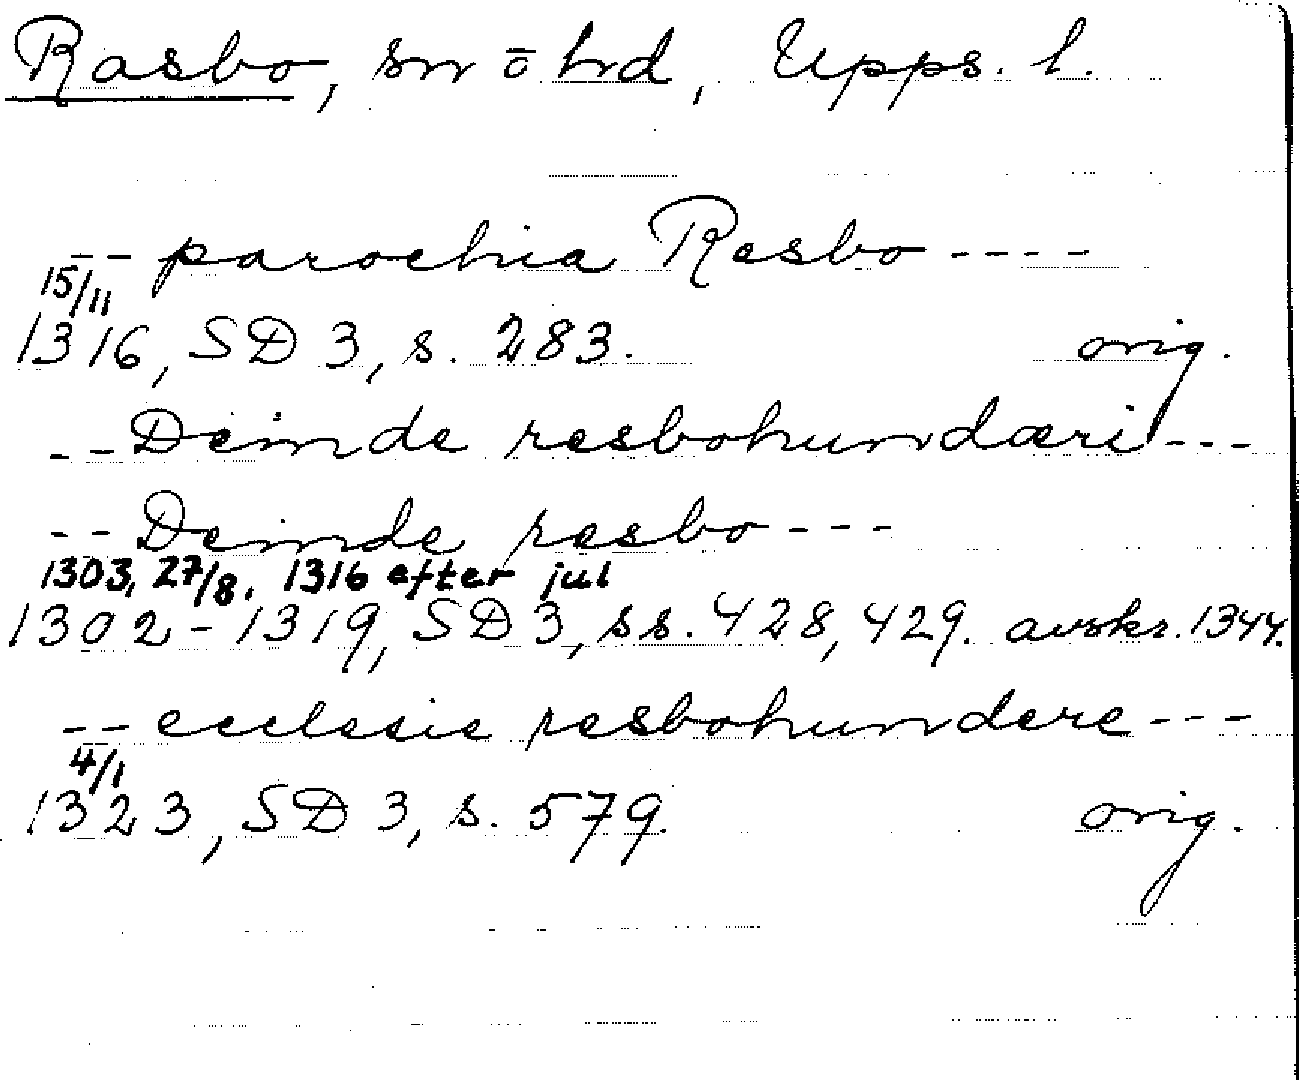 Rasbo, sn o hrd, Upps. l.
-- parochia Resbo ----
15/11
1316, SD 3, s. 283. orig.
-- Deinde resbohundæri ---
-- Deinde resbo ---
1303, 27/8. 1316 efter jul
1302-1319, SD 3, ss. 428, 429. avskr. 1344.
-- ecclesie resbohundere ---
4/1
1323, SD 3, s. 579. orig.